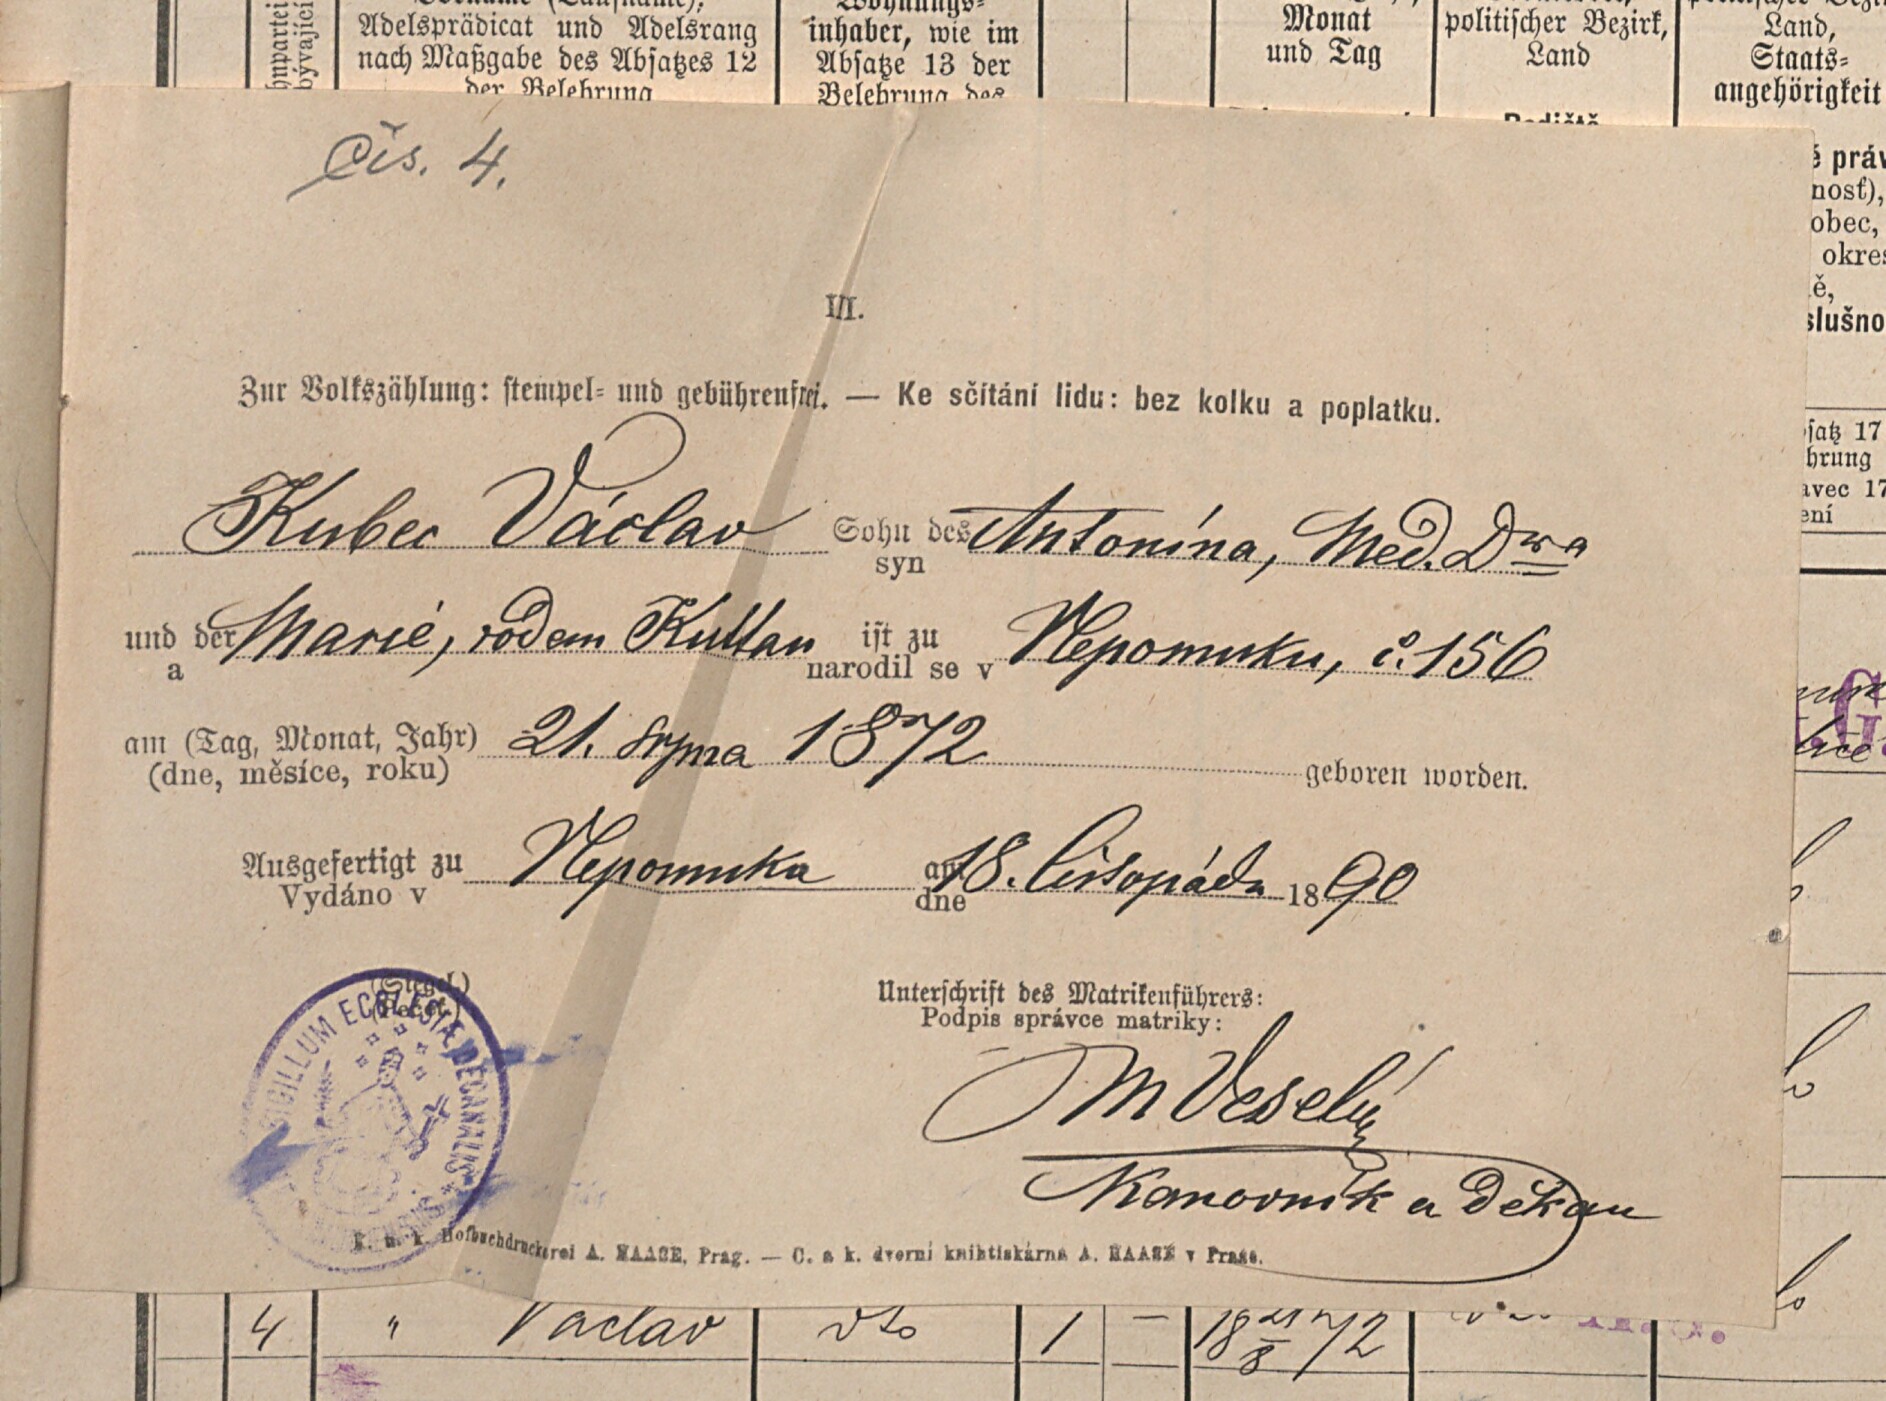 hnpartei
bývající
Adelsprädicat und Adelsrang
nach Maßgabe des Absatzes 12
der Belehrung
Wohnungs-
inhaber, wie im
Absatze 13 der
Belehrung des
Monat
und Tag
politischer Bezirk,
Land
Land,
Staats-
angehörigkeit
Rodiště
práv
nosť),
obec,
okres
ě,
slušno
satz 17
hrung
avec 17
ení
čís. 4.
III.
Zur Volkszählung: stempel- und gebührenfrei. — Ke sčítání lidu: bez kolku a poplatku.
Kubec Václav Sohn des Antonína, Med. Dra
syn
und der Marie, rodem Kuttan ist zu Nepomuku, č. 156
a narodil se v
am (Tag, Monat, Jahr) 21. srpna 1872
(dne, měsíce, roku) geboren worden.
Ausgefertigt zu Nepomuku am 18. listopádu 1890
Vydáno v dne
(Siegel.)
(Pečeť.)
SIGILLUM ECCLESIÆ DECANALIS
Unterschrift des Matrikenführers:
Podpis správce matriky:
M Veselý
Kanovník a Děkan
K. u. k. Hofbuchdruckerei A. HAASE, Prag. — C. a k. dvorní knihtiskárna A. HAASE v Praze.
4 " Vaclav dto 1 — 18 21/8 72